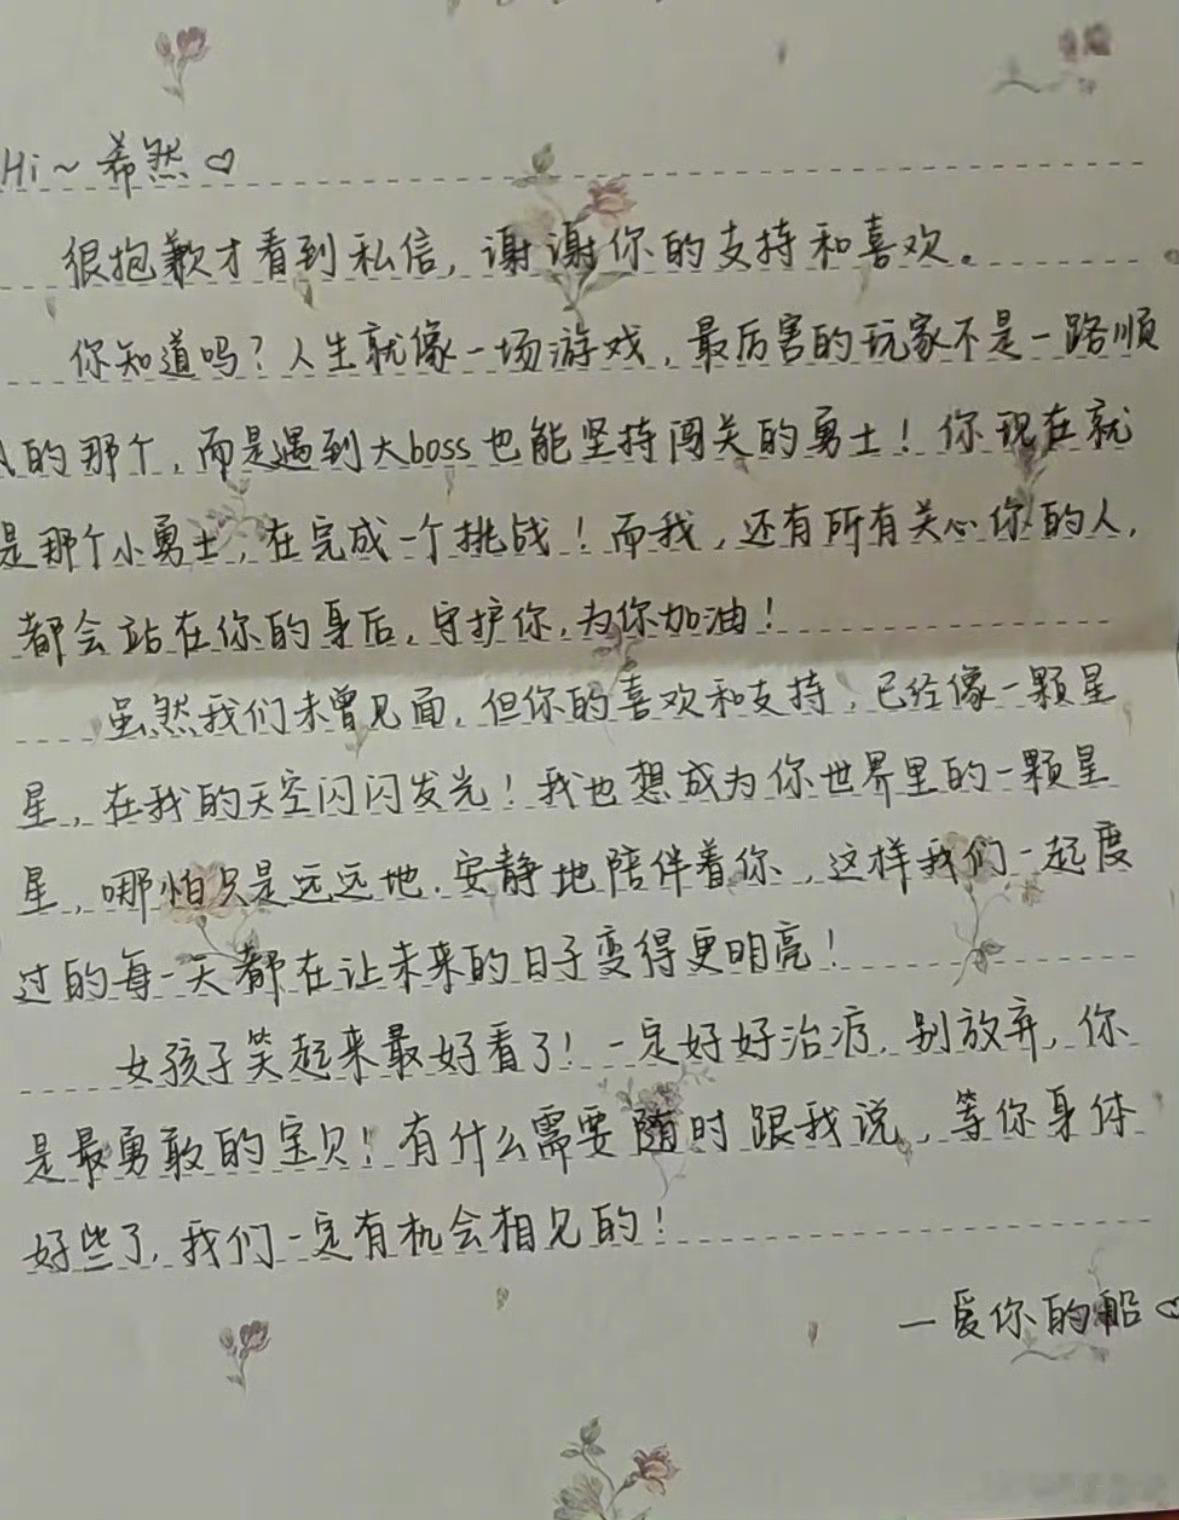 Hi~希然♡
很抱歉才看到私信,谢谢你的支持和喜欢。
你知道吗?人生就像一场游戏,最厉害的玩家不是一路顺
的那个,而是遇到大boss也能坚持闯关的勇士!你现在就
是那个小勇士,在完成一个挑战!而我,还有所有关心你的人,
都会站在你的身后,守护你,为你加油!
虽然我们未曾见面,但你的喜欢和支持,已经像一颗星
星,在我的天空闪闪发光!我也想成为你世界里的一颗星
星,哪怕只是远远地.安静地陪伴着你,这样我们一起度
过的每一天都在让未来的日子变得更明亮!
女孩子笑起来最好看了!一定好好治疗,别放弃,你
是最勇敢的宝贝!有什么需要随时跟我说,等你身体
好些了,我们一定有机会相见的!
—爱你的船♡